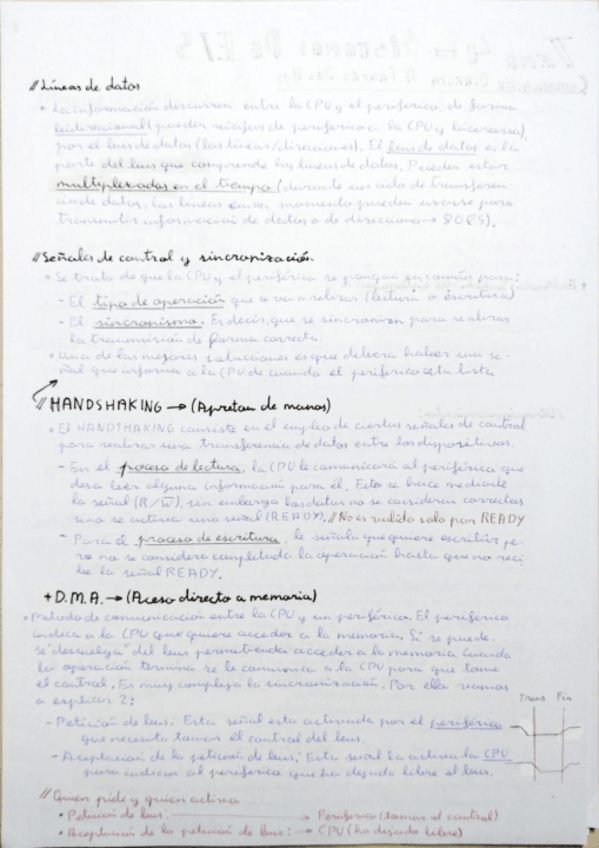 // Líneas de datos
• La información discurren entre la CPU y el periferico, de forma
bidireccional (pueden viajar de periferico a la CPU y viceversa),
por el bus de datos (las líneas/direcciones). El bus de datos es la
parte del bus que comprende las líneas de datos. Pueden estar
multiplexadas en el tiempo (durante un ciclo de transferen-
cia de datos, las líneas en un momento pueden usarse para
transmitir información de datos o de direcciones →
// Señales de control y sincronización
• Se trata de que la CPU y el periférico se pongan en común para:
- El tipo de operación que se va a relizar (lectura o escritura)
- El sincronismo. Es decir, que se sincronizen para realizar
la transmisión de forma correcta.
• Una de las mejores soluciones es que debera haber una se-
ñal que informa a la CPU de cuando el periferico esta lista
// HANDSHAKING → (Apreton de manos)
• El HANDSHAKING consiste en el empleo de ciertas señales de control
para realizar una transferencia de datos entre los dispositivos.
- En el proceso de lectura, la CPU le comunicará al periférico que
desea leer alguna información para él. Esto se hace mediante
la señal (R/W̅), sin embargo los datos no se consideran correctos
si no se activa una señal (READY). // No es valido solo por READY
- Para el proceso de escritura, la señala que quiere escribir pe-
ro no se considera completada la operación hasta que no reci-
be la señal READY.
+ D.M.A. → (Acceso directo a memoria)
• Metodo de comunicación entre la CPU y un periférico. El periferico
indica a la CPU que quiere acceder a la memoria. Si se puede,
se "descuelga" del bus permitiendo acceder a la memoria. Cuando
la operación termina se le comunica a la CPU para que tome
el control. Es muy compleja la sincronización. Por ello vamos
a explicar 2:
Trans Fin
- Petición de bus: Esta señal esta activada por el periférico
que necesita tomar el control del bus.
- Aceptación de la petición de bus: Esta señal la activa la CPU
para indicar al periferico que ha dejado libre el bus.
// Quien pide y quien activa
• Petición de bus: → Periferico (tomar el control)
• Aceptación de la petición de bus: → CPU (ha dejado libre)